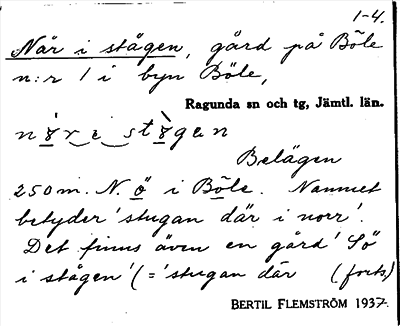 1-4.
När i stågen, gård på Böle
n:r 1 i byn Böle,
Ragunda sn och tg, Jämtl. län.
Belägen
250 m. N. ö i Böle. Namnet
betyder 'stugan där i norr'.
Det finns även en gård 'Sö
i stågen' (= 'stugan där (forts)
BERTIL FLEMSTRÖM 1937.